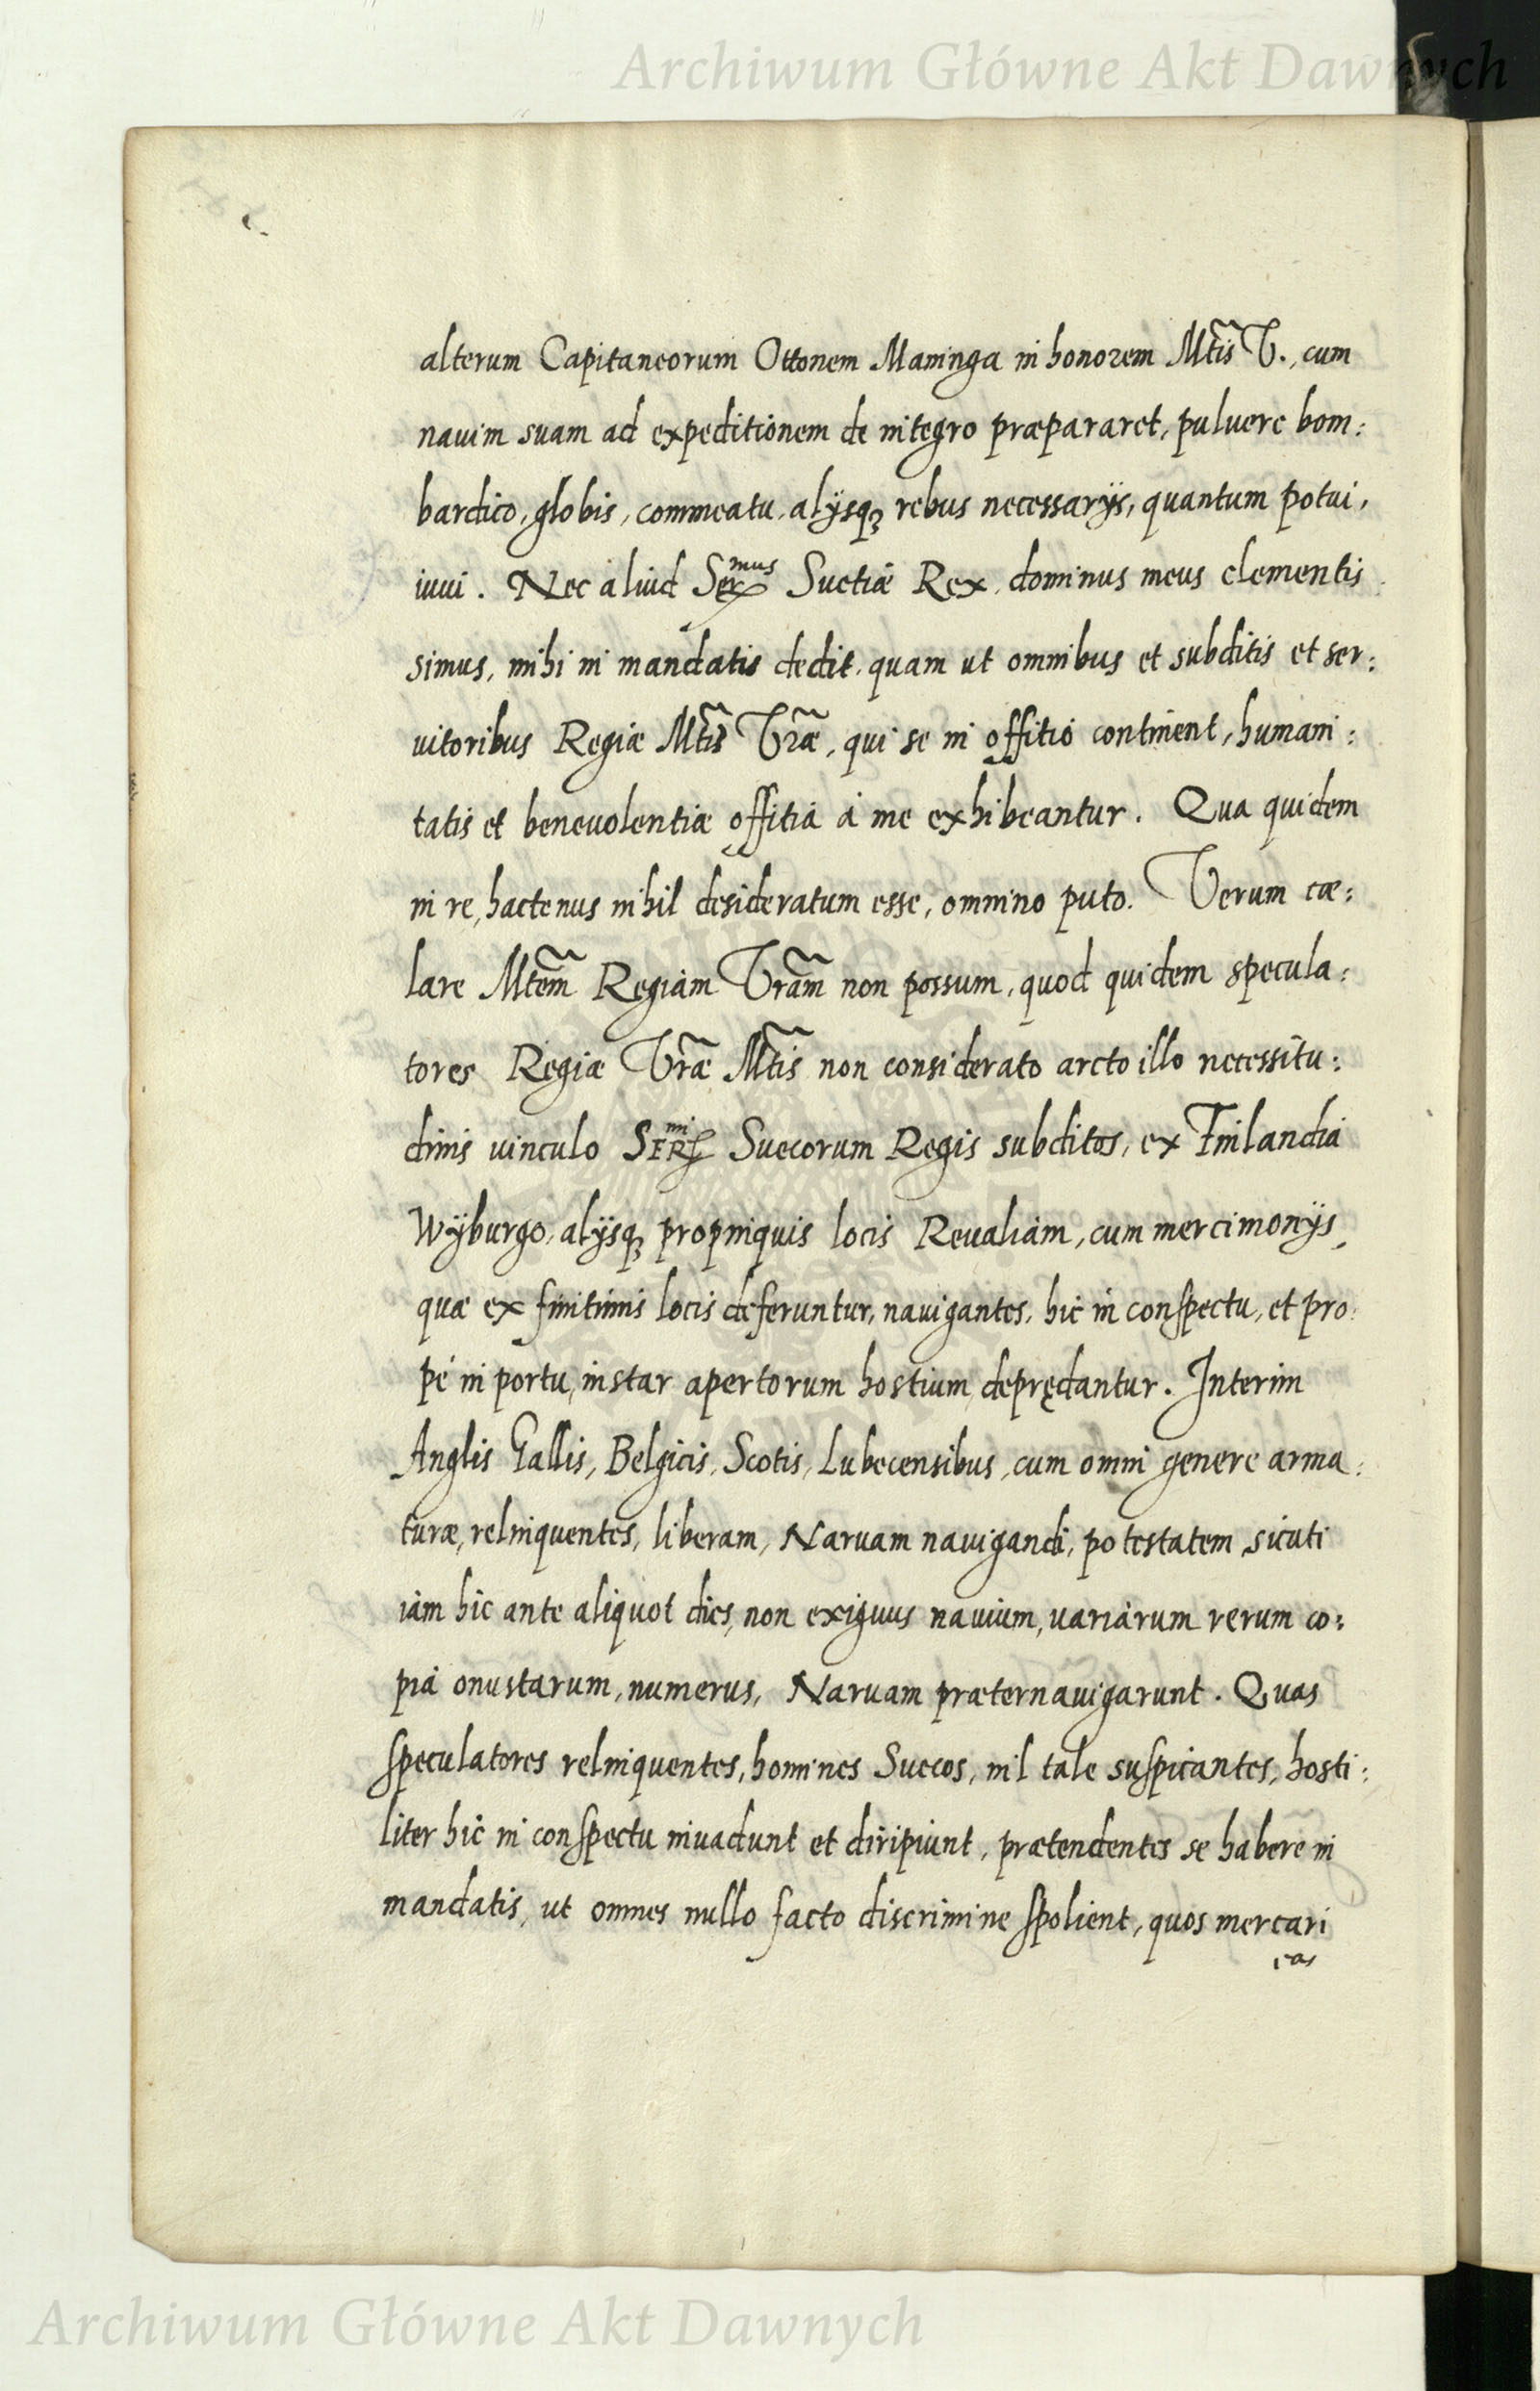 Archiwum Główne Akt Dawnych
alterum Capitaneorum Ottonem Maninga in honorem Mtis V., cum
nauim suam ad expeditionem de integro præpararet, puluere bom:
bardico, globis, commeatu, alijsq; rebus necessarijs, quantum potui,
iuui. Nec aliud Sermus Suetiæ Rex, dominus meus clementis
simus, mihi in mandatis dedit, quam ut omnibus et subditis et ser:
uitoribus Regiæ Mtis Vræ, qui se in offitio continent, humani:
tatis et beneuolentiæ offitia à me exhibeantur. Qua quidem
in re, hactenus nihil desideratum esse, omnino puto. Verum cæ:
lare Mtem Regiam Vram non possum, quod quidem specula:
tores Regiæ Vræ Mtis non considerato arcto illo necessitu:
dinis uinculo Sermi Suecorum Regis subditos, ex Finlandia
Wÿburgo, alijsq; propinquis locis Reualiam, cum mercimonijs,
quæ ex finitimis locis deferuntur, nauigantes, hic in conspectu, et pro
pè in portu, instar apertorum hostium, deprędantur. Interim
Anglis Gallis, Belgicis, Scotis, Lubecensibus, cum omni genere arma:
turæ, relinquentes, liberam, Naruam nauigandi, potestatem, sicuti
iam hic ante aliquot dies, non exiguus nauium, uariarum rerum co:
pia onustarum, numerus, Naruam præternauigarunt. Quas
speculatores relinquentes, homines Suecos, nil tale suspicantes, hosti:
liter hic in conspectu inuadunt et diripiunt, prætendentes se habere in
mandatis, ut omnes nullo facto discrimine spolient, quos mercari
eas
Archiwum Główne Akt Dawnych